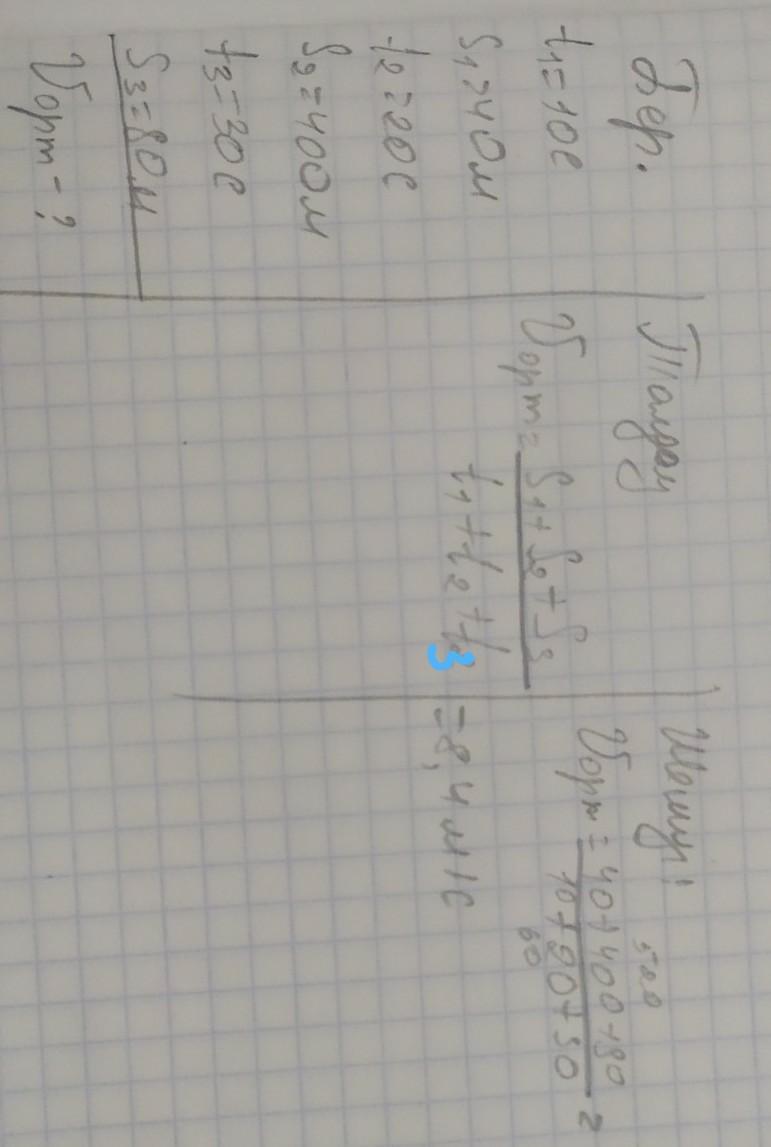 Бер.
t₁=10с
S₁=40м
t₂=20с
S₂=400м
t₃=30с
S₃=80м
Vорт-?
Талдау
Vорт= S₁+S₂+S₃
t₁+t₂+t₃
Шешуі
520
Vорт= 40+400+80 =
10+20+30
60
=8,4м/с